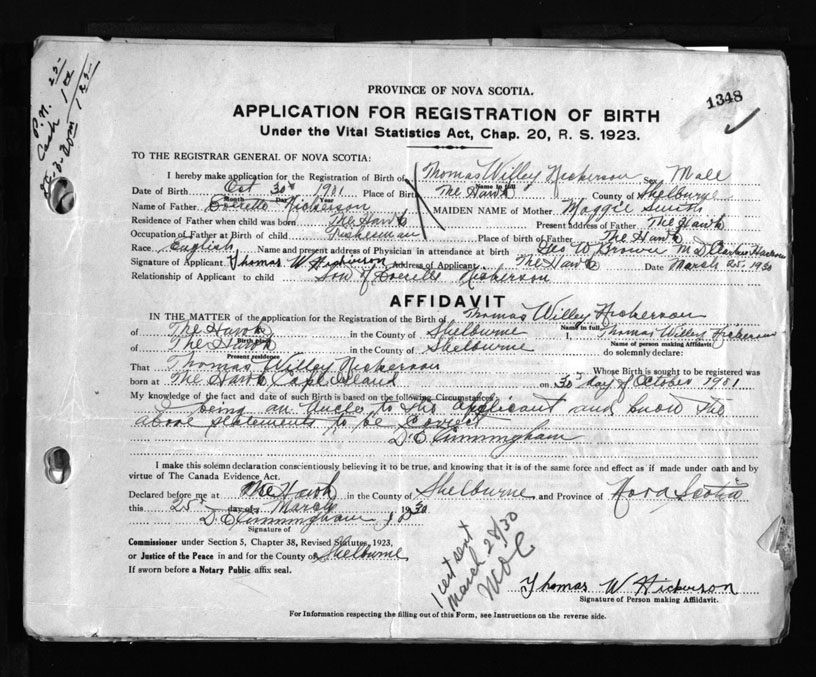 PROVINCE OF NOVA SCOTIA.
1348
APPLICATION FOR REGISTRATION OF BIRTH
Under the Vital Statistics Act, Chap. 20, R. S. 1923.
P.N. 25
Cash 1 00
1 25
TO THE REGISTRAR GENERAL OF NOVA SCOTIA:
I hereby make application for the Registration of Birth of Thomas Willey Nickerson Sex Male
Name in full
Date of Birth Oct 30th 1901 Place of Birth The Hawk County of Shelburne
Month Day Year
Name of Father Nickerson MAIDEN NAME of Mother Maggie
Residence of Father when child was born The Hawk Present address of Father The Hawk
Occupation of Father at Birth of child Fisherman Place of birth of Father The Hawk
Race English Name and present address of Physician in attendance at birth Geo W Brown M D Clarks Harbour
Signature of Applicant Thomas W Nickerson Address of Applicant The Hawk Date March 25, 1930
Relationship of Applicant to child Son of Nickerson
AFFIDAVIT
IN THE MATTER of the application for the Registration of the Birth of Thomas Willey Nickerson
Name in full
of The Hawk in the County of Shelburne I, Thomas Willey Nickerson
Birth place
Name of person making Affidavit
of The Hawk in the County of Shelburne do solemnly declare:
Present residence
That Thomas Willey Nickerson Whose Birth is sought to be registered was
born at The Hawk Cape Island on 30th day of October 1901
My knowledge of the fact and date of such Birth is based on the following Circumstances:
I being an Uncle to the Applicant and know the
above statements to be Correct
D. C. Cunningham
I make this solemn declaration conscientiously believing it to be true, and knowing that it is of the same force and effect as if made under oath and by
virtue of The Canada Evidence Act.
Declared before me at The Hawk in the County of Shelburne and Province of Nova Scotia
this 25 day of March 1930
D. C. Cunningham J P
Signature of
Commissioner under Section 5, Chapter 38, Revised Statutes, 1923,
or Justice of the Peace in and for the County of Shelburne
If sworn before a Notary Public affix seal.
1 cert sent
March 28/30
Thomas W Nickerson
Signature of Person making Affidavit.
For Information respecting the filling out of this Form, see Instructions on the reverse side.